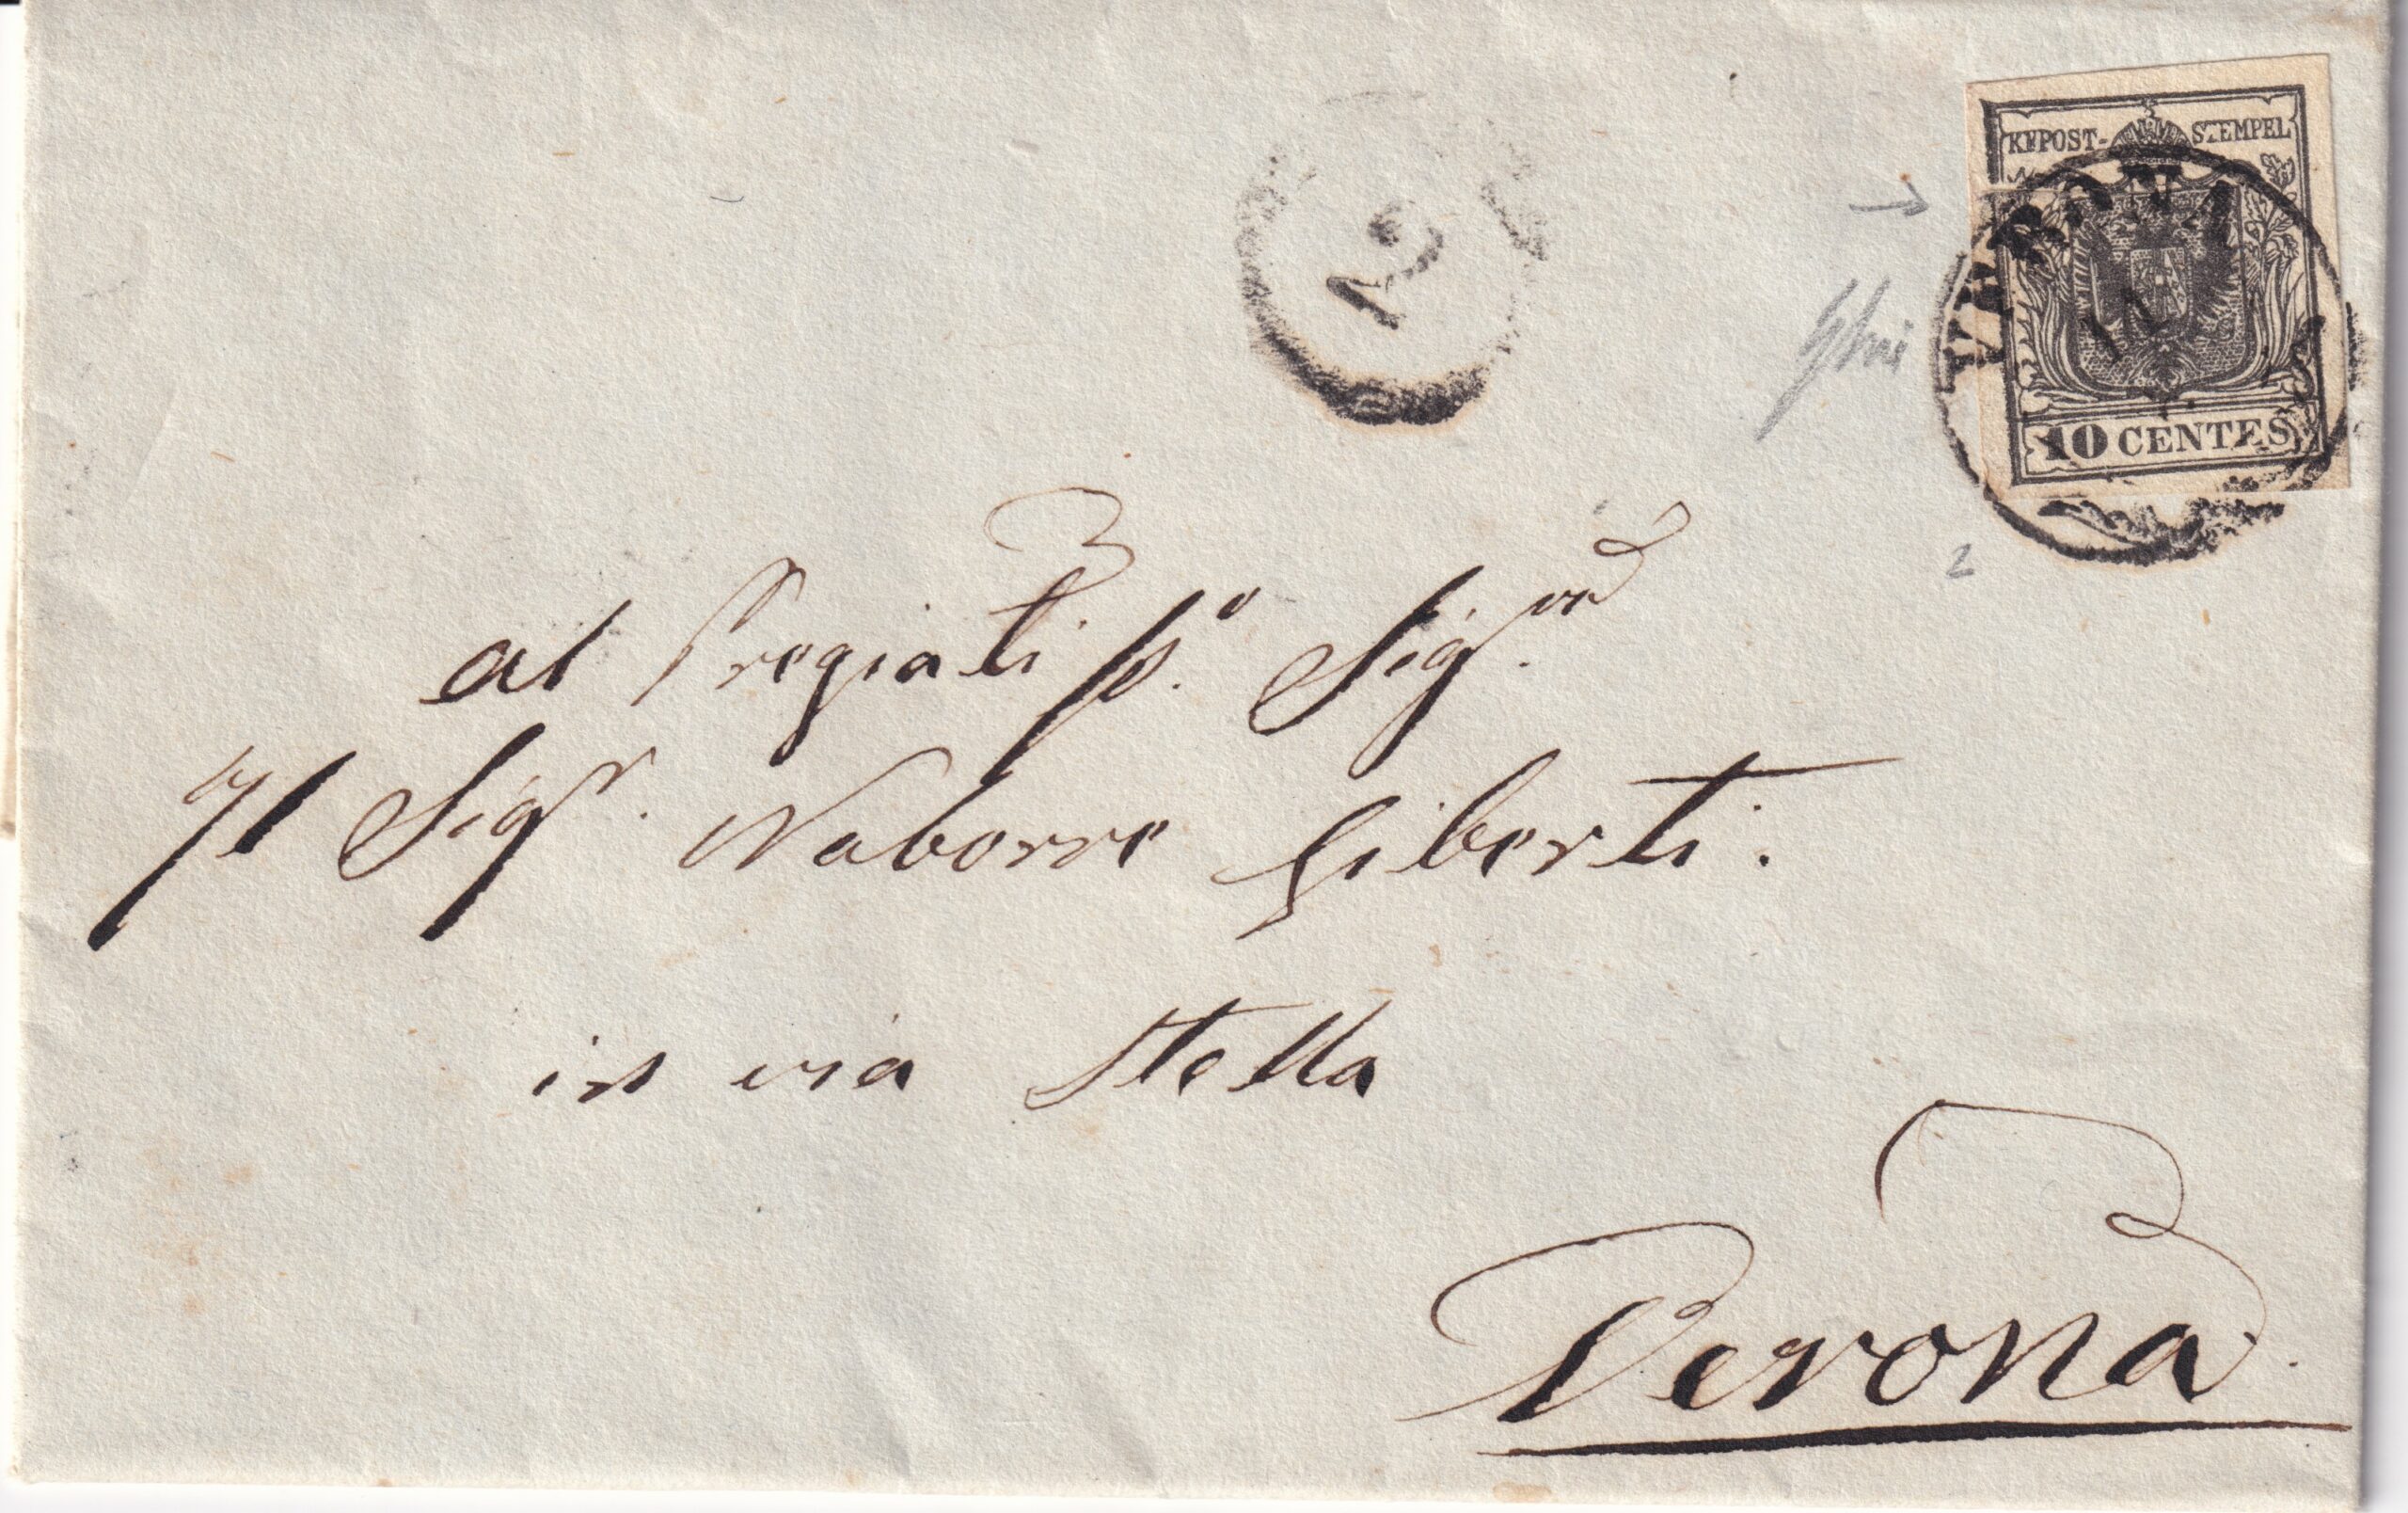 KKPOST- STEMPEL
VERONA
11
10 CENTES
12
Al Pregiatiss.o Sig.re
Il Sig.r Naborre Giberti.
in via Stella
Verona